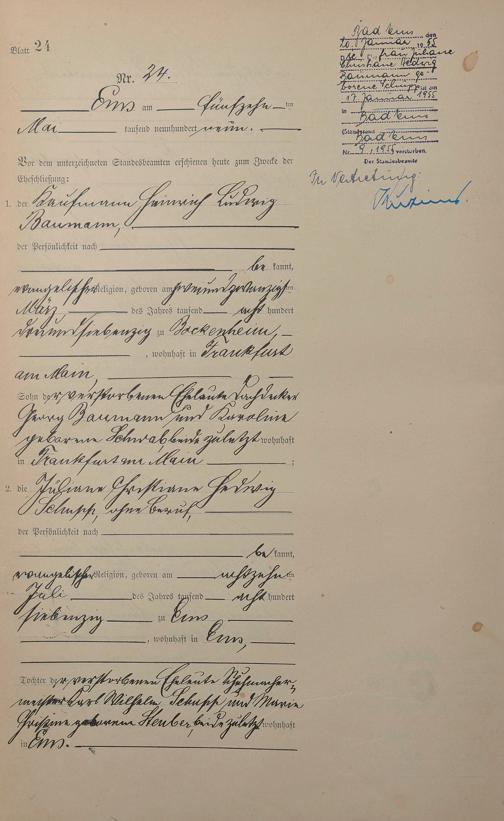 Blatt 24
Nr. 24.
Ems am fünfzehn ten
Mai tausend neunhundert neun.
Vor dem unterzeichneten Standesbeamten erschienen heute zum Zwecke der
Eheschließung:
1. der Kaufmann Heinrich Ludwig
Baumann,
der Persönlichkeit nach
be kannt,
evangelischer Religion, geboren am zweiundzwanzigsten
März, des Jahres tausend acht hundert
dreiundsiebenzig zu Bockenheim,
, wohnhaft in Frankfurt
am Main,
Sohn der verstorbenen Eheleute Dachdecker
Georg Baumann und Karoline
geborene Schwab, beide zuletzt wohnhaft
in Frankfurt am Main ;
2. die Juliane Christiane Hedwig
Schupp, ohne Beruf,
der Persönlichkeit nach
be kannt,
evangelischer Religion, geboren am achtzehn ten
Juli des Jahres tausend acht hundert
siebenzig zu Ems
, wohnhaft in Ems,
Tochter der verstorbenen Eheleute Schuhmacher-
meister Karl Wilhelm Schupp und Marie
Christine geborene Steuber, beide zuletzt wohnhaft
in Ems.
Bad Ems, den
20. Januar 1955
Frau Juliane
Christiane Hedwig
Baumann ge-
borene Schupp ist am
17. Januar 1955
in Bad Ems
(Standesamt
Bad Ems
Nr. 9/1955 verstorben.
Der Standesbeamte
In Vertretung: